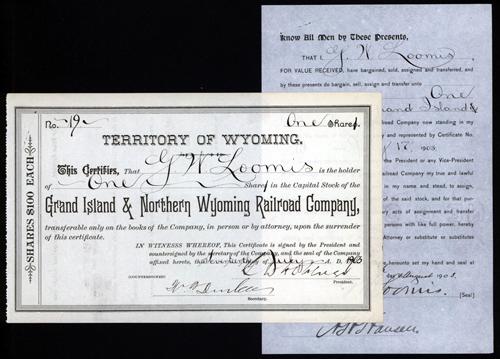 No. 19 One Shares
SHARES $100 EACH
TERRITORY OF WYOMING.
This Certifies, That G W Loomis is the holder
of One Shares in the Capital Stock of the
Grand Island & Northern Wyoming Railroad Company,
transferable only on the books of the Company, in person or by attorney, upon the surrender
of this certificate.
IN WITNESS WHEREOF, This Certificate is signed by the President and
countersigned by the Secretary of the Company, and the seal of the Company
affixed hereto, this day of A. D. 1903
COUNTERSIGNED
President.
Secretary.
Know All Men by These Presents,
THAT I, G. W. Loomis
FOR VALUE RECEIVED, have bargained, sold, assigned and transferred, and
by these presents do bargain, sell, assign and transfer unto
One
and Island &
Railroad Company now standing in my
and represented by Certificate No.
1903
the President or any Vice-President
Railroad Company my true and lawful
in my name and stead, to assign,
the said stock, and for that pur-
ary acts of assignment and transfer
persons with like full power, hereby
Attorney or substitute or substitutes
hereunto set my hand and seal at
August 1903.
Loomis. [Seal]